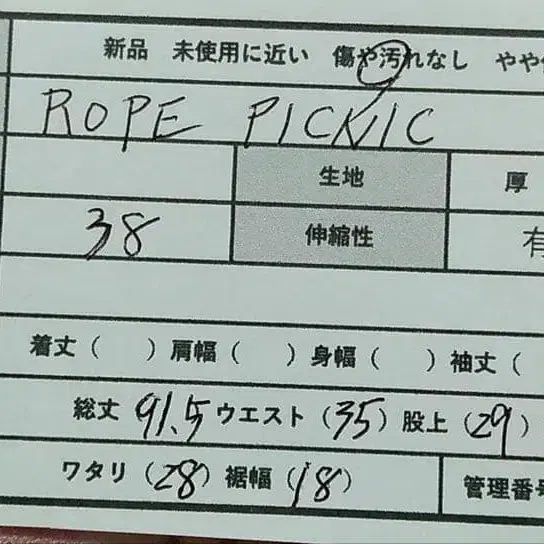 新品 未使用に近い 傷や汚れなし やや
ROPE PICNIC
生地 厚
38 伸縮性 有
着丈( )肩幅( )身幅( )袖丈(
総丈 91.5 ウエスト(35)股上(29)
ワタリ(28)裾幅(18) 管理番号